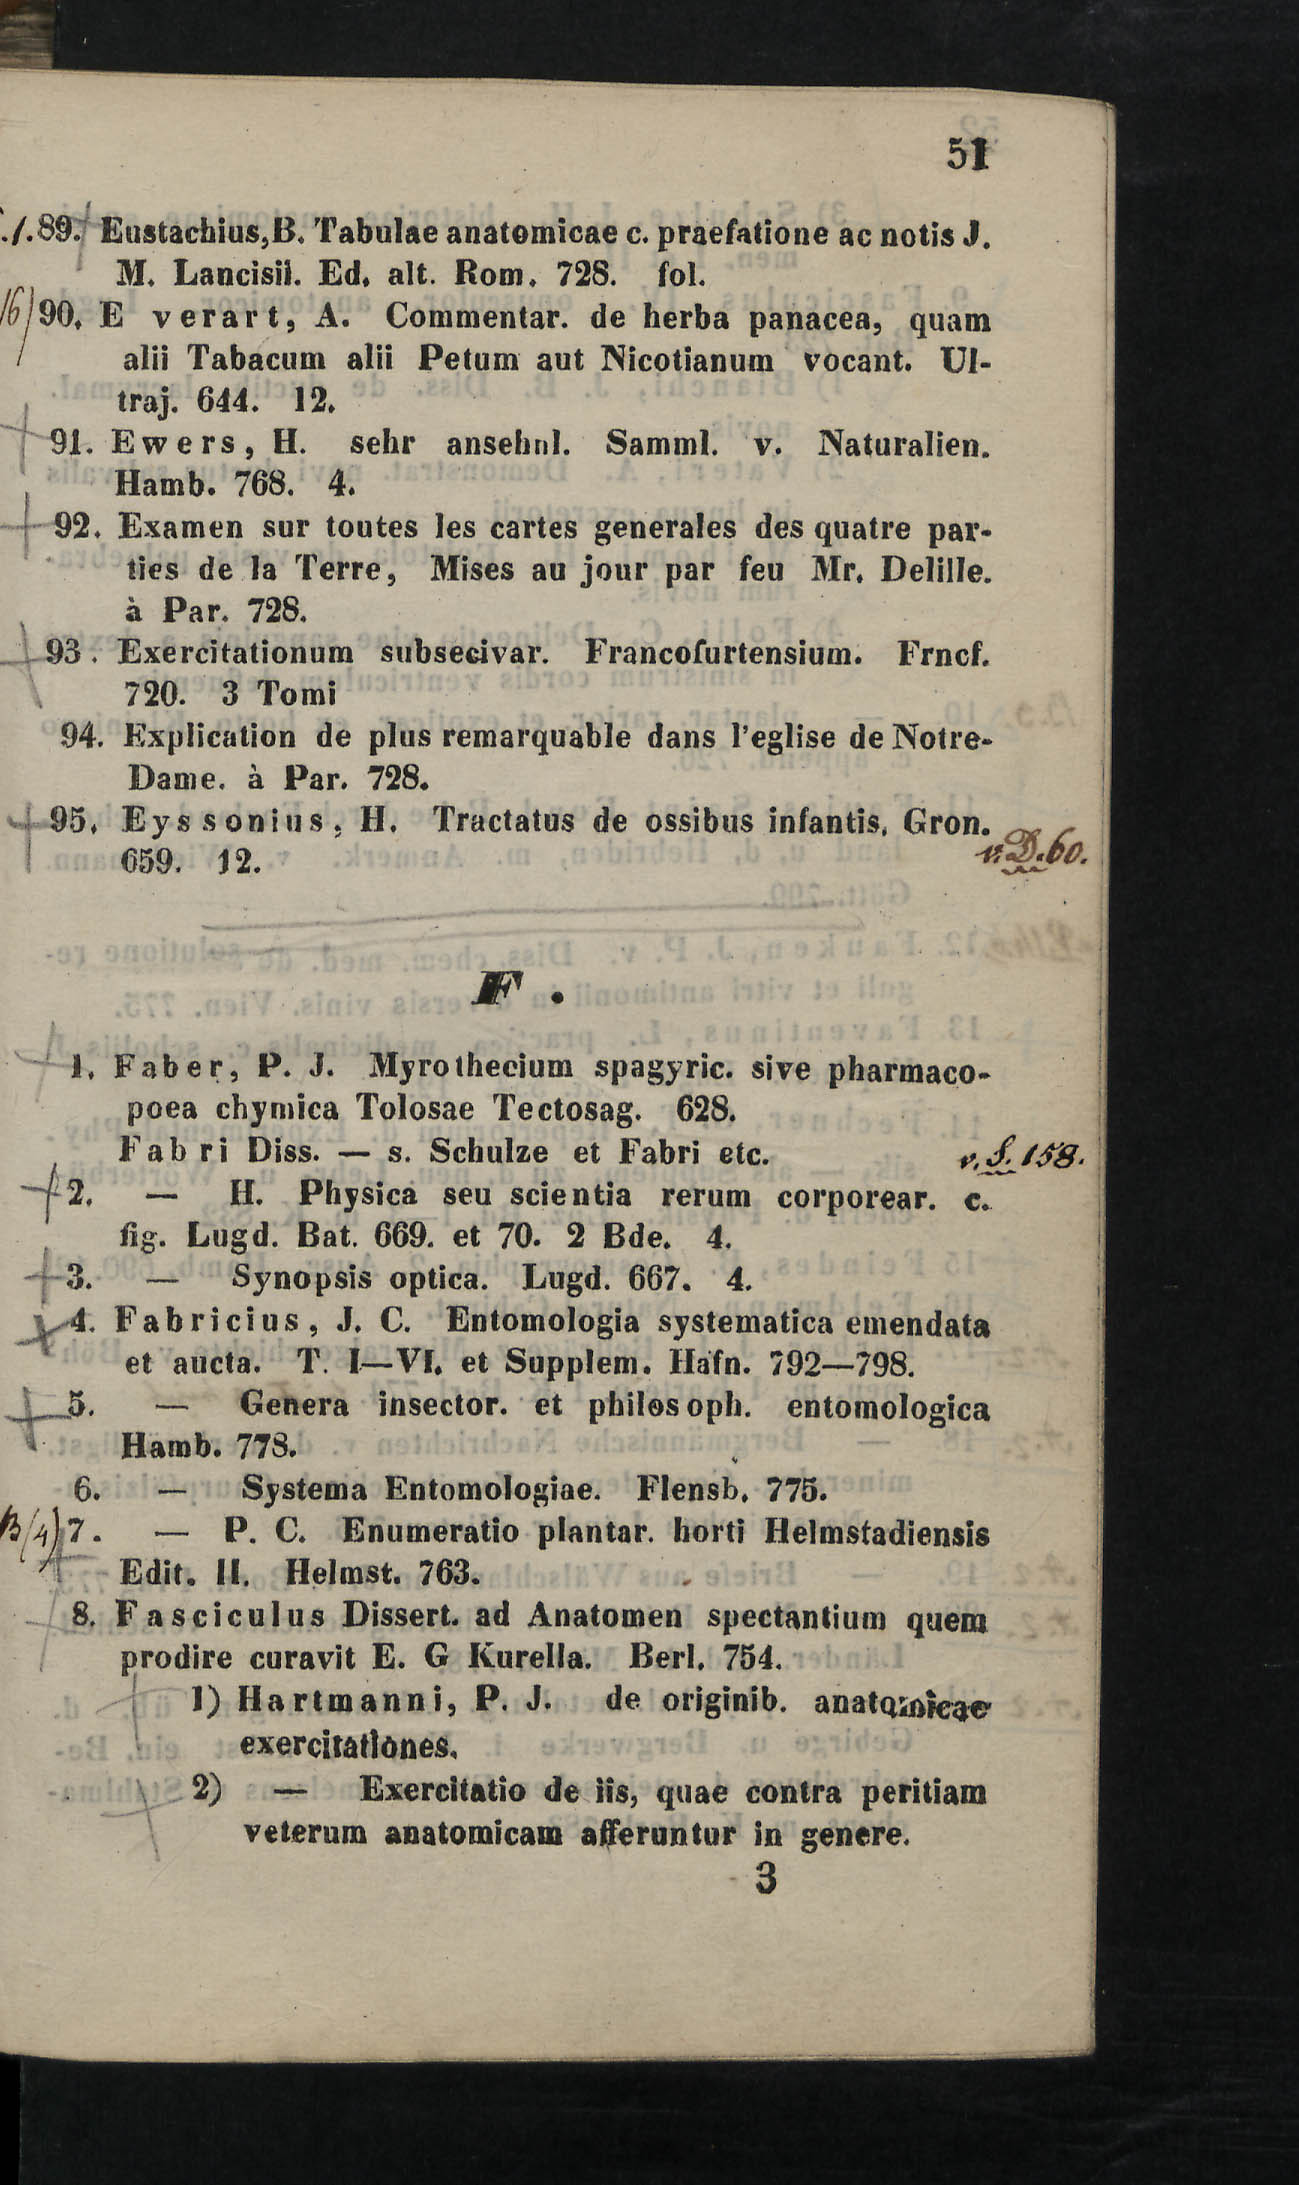 51
89. Eustachius, B. Tabulae anatomicae c. praefatione ac notis J.
M. Lancisii. Ed. alt. Rom. 728. fol.
16) 90. Everart, A. Commentar. de herba panacea, quam
alii Tabacum alii Petum aut Nicotianum vocant. Ul-
traj. 644. 12.
91. Ewers, H. sehr ansehnl. Samml. v. Naturalien.
Hamb. 768. 4.
92. Examen sur toutes les cartes generales des quatre par-
ties de la Terre, Mises au jour par feu Mr. Delille.
à Par. 728.
93. Exercitationum subsecivar. Francofurtensium. Frncf.
720. 3 Tomi
94. Explication de plus remarquable dans l'eglise de Notre-
Dame. à Par. 728.
95. Eyssonius, H. Tractatus de ossibus infantis. Gron.
659. 12. v. D. 60.
F.
1. Faber, P. J. Myrothecium spagyric. sive pharmaco-
poea chymica Tolosae Tectosag. 628.
Fabri Diss. — s. Schulze et Fabri etc. v. S. 158.
2. — H. Physica seu scientia rerum corporear. c.
fig. Lugd. Bat. 669. et 70. 2 Bde. 4.
3. — Synopsis optica. Lugd. 667. 4.
4. Fabricius, J. C. Entomologia systematica emendata
et aucta. T. I—VI. et Supplem. Hafn. 792—798.
5. — Genera insector. et philosoph. entomologica
Hamb. 778.
6. — Systema Entomologiae. Flensb. 775.
7. — P. C. Enumeratio plantar. horti Helmstadiensis
Edit. II. Helmst. 763.
8. Fasciculus Dissert. ad Anatomen spectantium quem
prodire curavit E. G Kurella. Berl. 754.
1) Hartmanni, P. J. de originib. anatomicae
exercitationes.
2) — Exercitatio de iis, quae contra peritiam
veterum anatomicam afferuntur in genere.
3